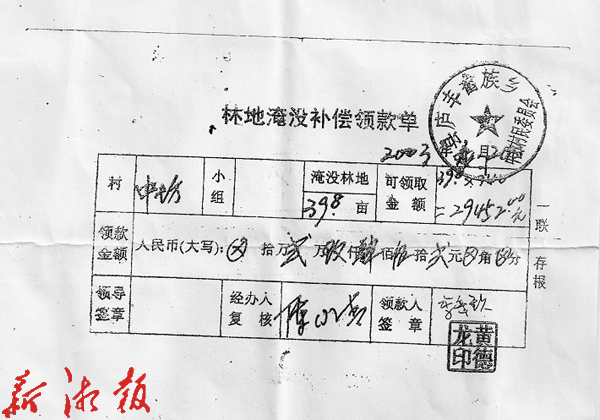 林地淹没补偿领款单
2003
村
小组
淹没林地
39.8 亩
可领取金额
=29452.00元
一联 存根
领款金额
人民币(大写): 拾万 贰 万 玖 仟 肆 佰 伍 拾 贰 元 角 分
领导签章
经办人复核
领款人签章
黄德龙印
新湘报